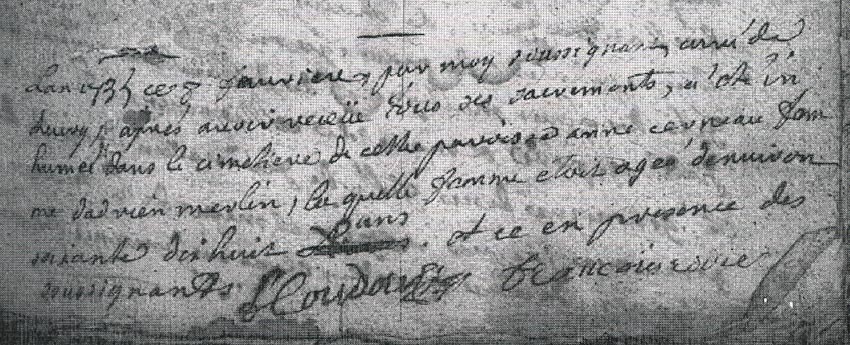 Lan 1735 ce 8 Janvriere, par moy soussignant, curré de
heurey, apres avoir receüe tous ses sacrements, a eté in
humée dans le cimetiere de cette paroisse anne cerneau fam
me dadrien merlin, la quelle famme etoit agée denviron
soixante dixhuit ans. et ce en presence des
soussignants françois